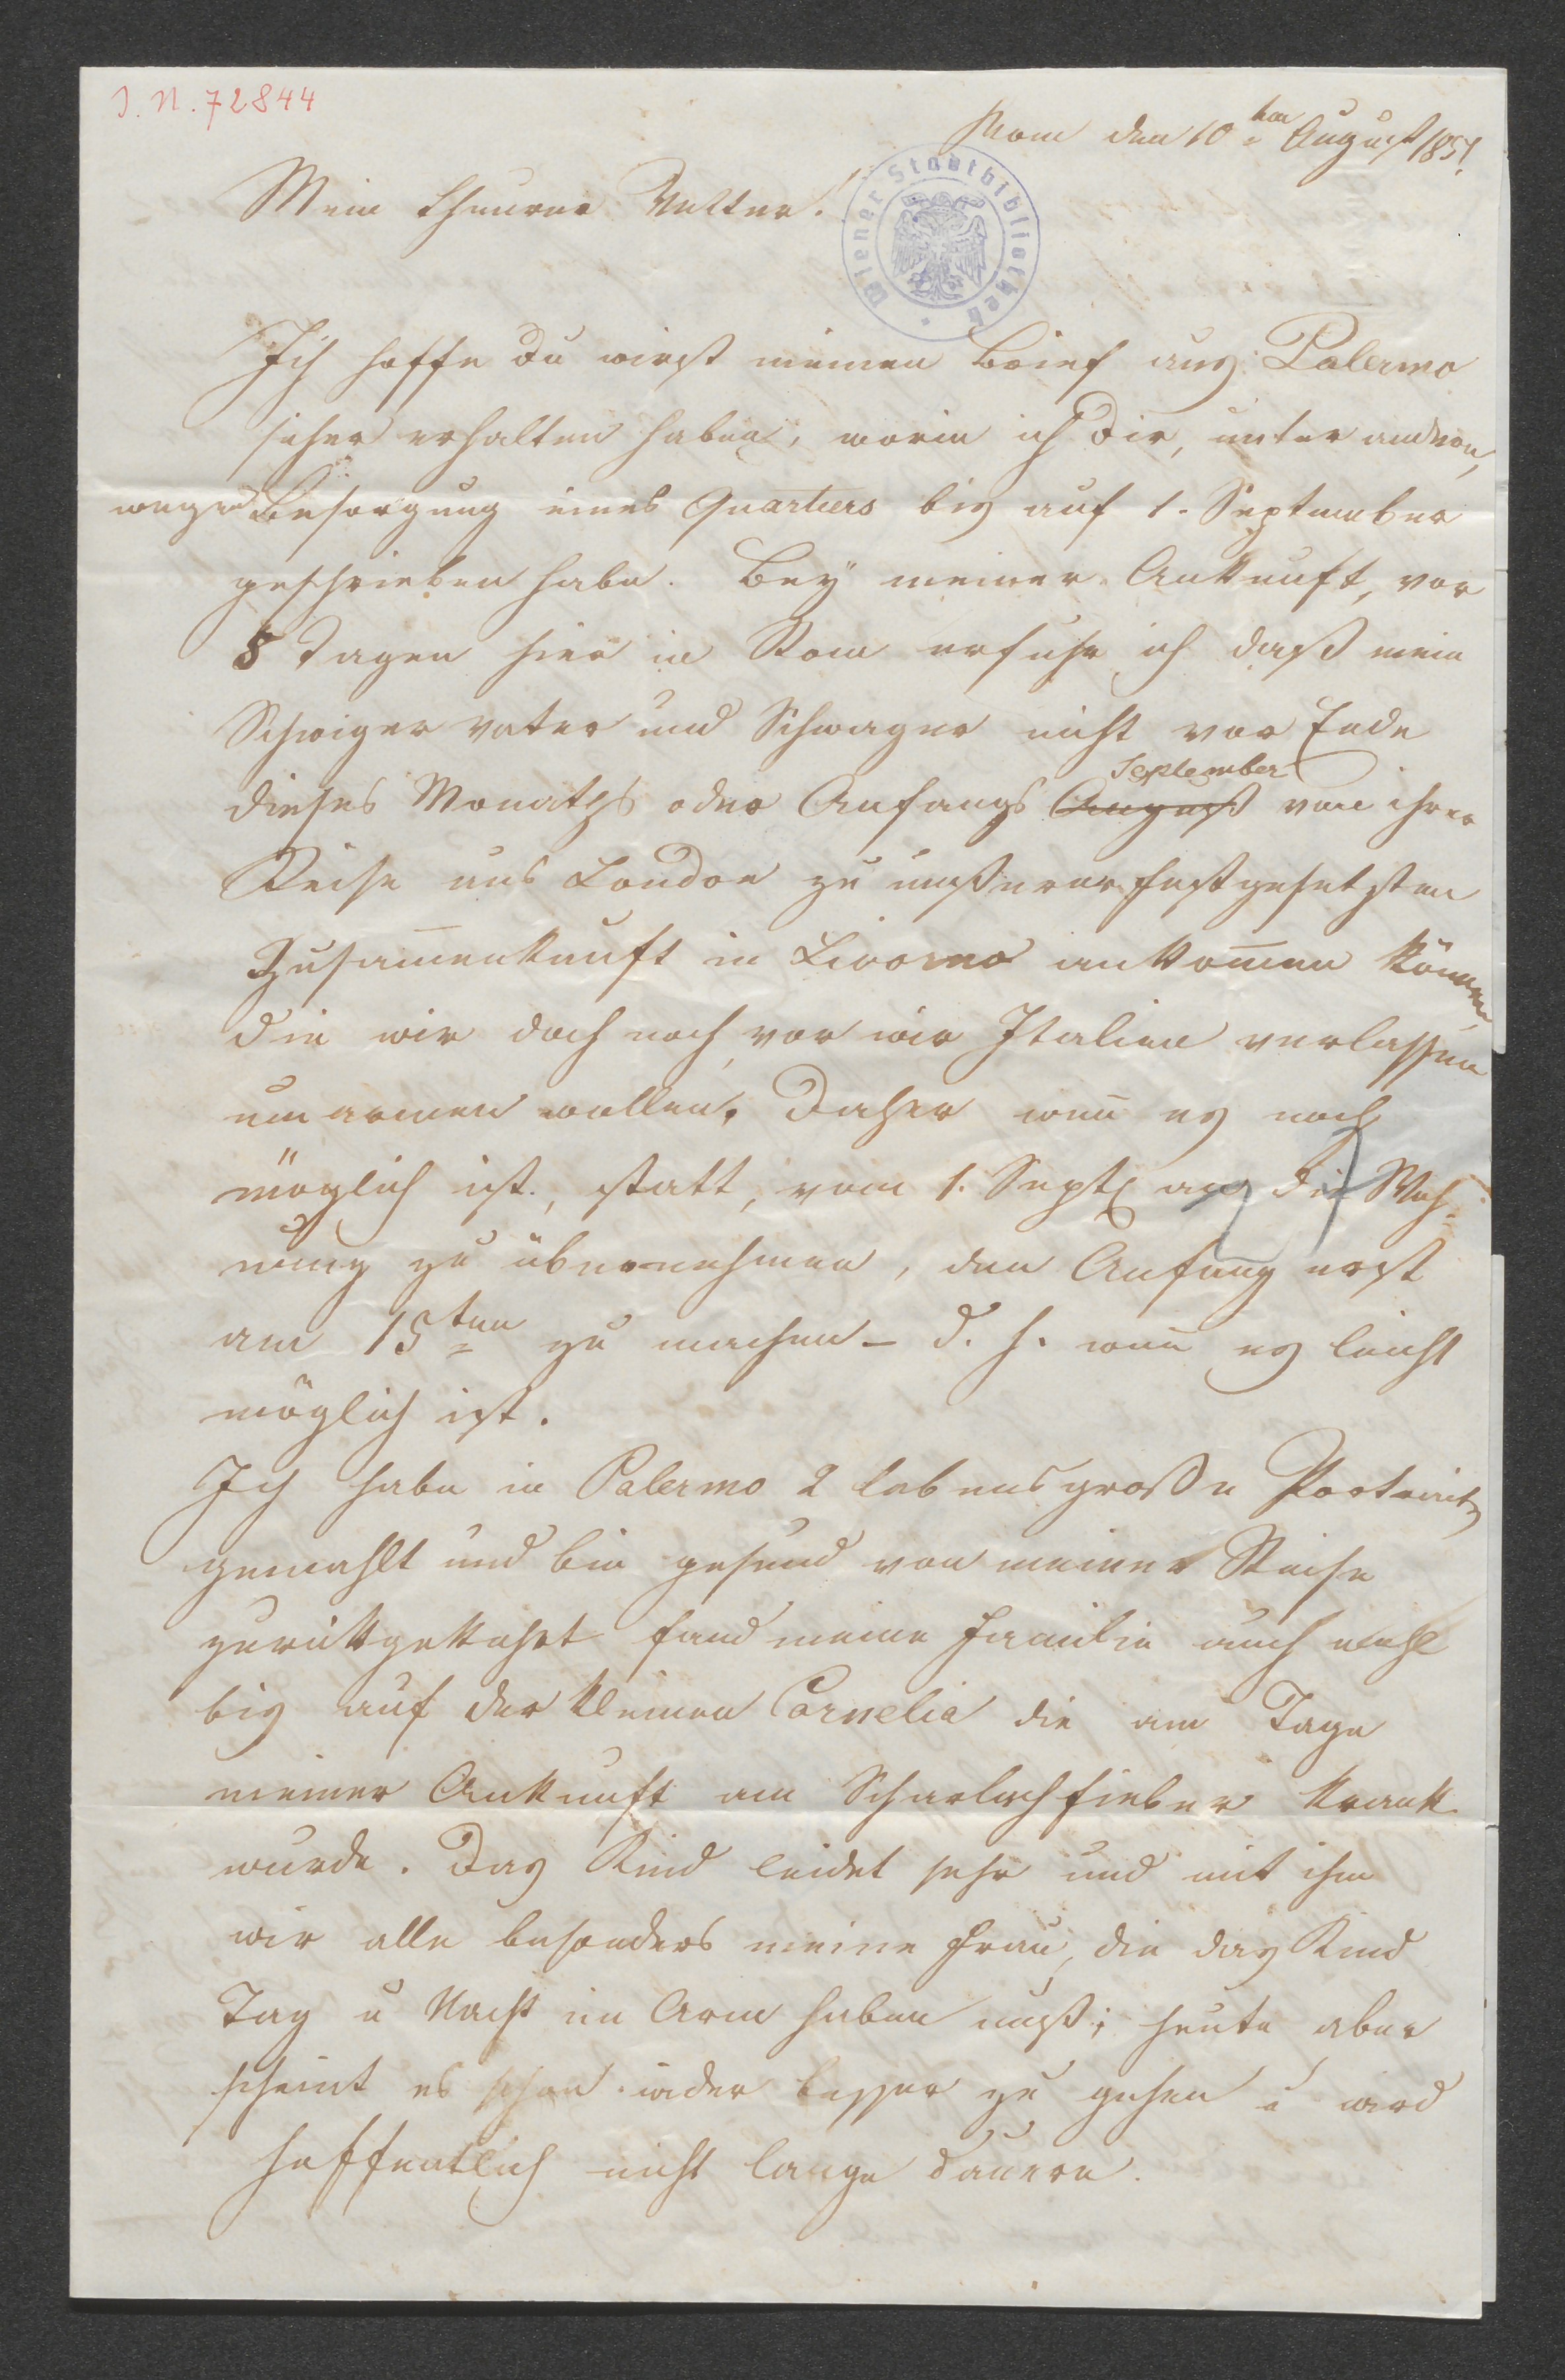 J. N. 72844
Rom den 10ten August 1851.
Mein theurer Vetter!
Wiener Stadtbibliothek
Ich hoffe du wirst meinen Brief aus Palermo
sicher erhalten haben, worin ich Dir, unter andern,
wegen Besorgung eines Quartiers bis auf 1. September
geschrieben habe. Bey meiner Ankunft, vor
8 Tagen hier in Rom erfuhr ich daß mein
Schwiger vater und Schwager nicht vor Ende
September
dieses Monaths oder Anfangs August von ihrer
Reise aus London zu unßerer festgesetzten
Zusam̅enkunft in Livorno ankom̅en können,
die wir doch noch, vor wir Italien verlassen
umarmen wollen. Daher wen̅ es noch
möglich ist, statt, vom 1. Sept an die Woh-
nung zu übernehmen, den Anfang erst
am 15ten zu machen – d. h. wen̅ es leicht
möglich ist.
Ich habe in Palermo 2 lebensgroße Portraits
gemahlt und bin gesund von meiner Reise
zurükkgekehrt fand meine Familie auch wohl
bis auf der kleinen Cornelia die am Tage
meiner Ankunft am Scharlachfieber krank
wurde. Das Kind leidet sehr und mit ihm
wir alle besonders meine Frau, die das Kind
Tag u Nacht im Arm haben muß; heute aber
scheint es schon wider besser zu gehen u wird
hoffentlich nicht lange dauern.